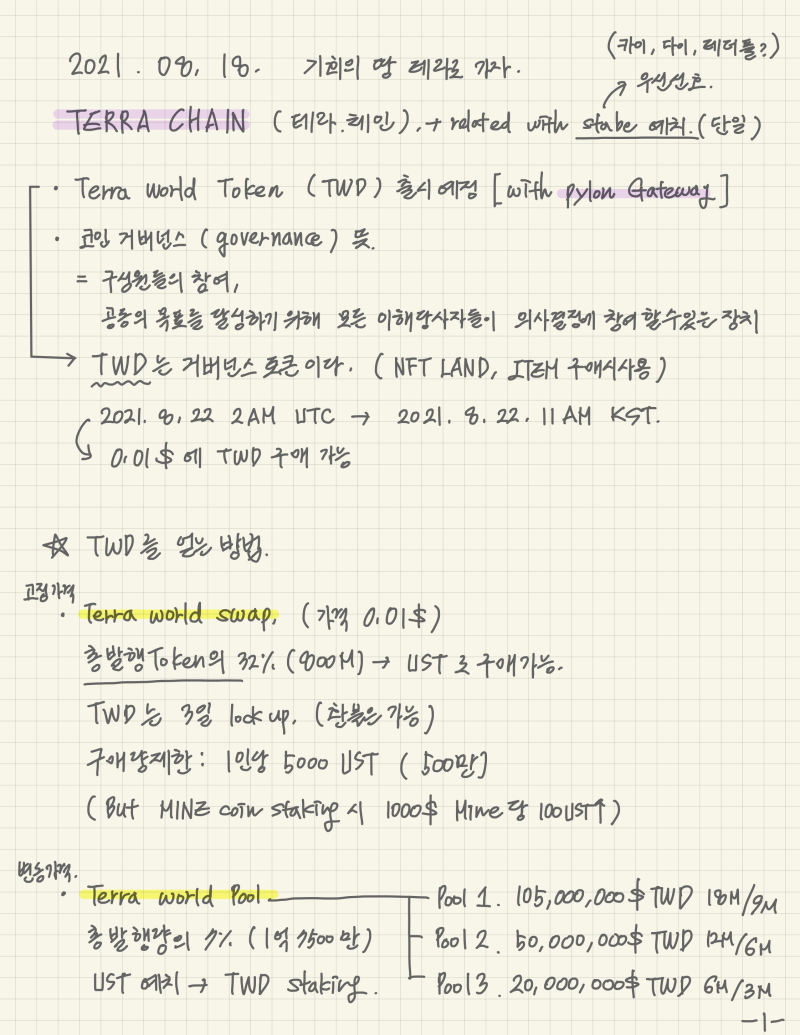 2021. 08. 18. 기회의 땅 테라로 가자.
(카이, 다이, 테더 둘?)
우선선호.
TERRA CHAIN (테라.체인), → related with stabe 예치.(단일)
· Terra world Token (TWD) 출시 예정 [with pylon Gateway]
· 코인 거버넌스 (governance) 뜻.
= 구성원들의 참여,
공동의 목표를 달성하기 위해 모든 이해당사자들이 의사결정에 참여 할수있는 장치
TWD는 거버넌스 토큰이다. (NFT LAND, ITEM 구매시사용)
2021. 8. 22 2AM UTC → 2021. 8. 22. 11AM KST.
0.01$ 에 TWD 구매 가능
☆ TWD를 얻는 방법.
고정가격
· Terra world swap. (가격 0.01$)
총발행Token의 32% (800M) → UST로 구매가능.
TWD는 3일 lock up. (환불은 가능)
구매량제한: 1인당 5000 UST (500만)
(But MINE coin staking 시 1000$ Mine 당 100UST↑)
변동가격.
· Terra world Pool.
총 발행량의 7% (1억 7500만)
UST 예치 → TWD staking.
Pool 1. 105,000,000$ TWD 18M/9M
Pool 2. 50,000,000$ TWD 12M/6M
Pool 3. 20,000,000$ TWD 6M/3M
-1-